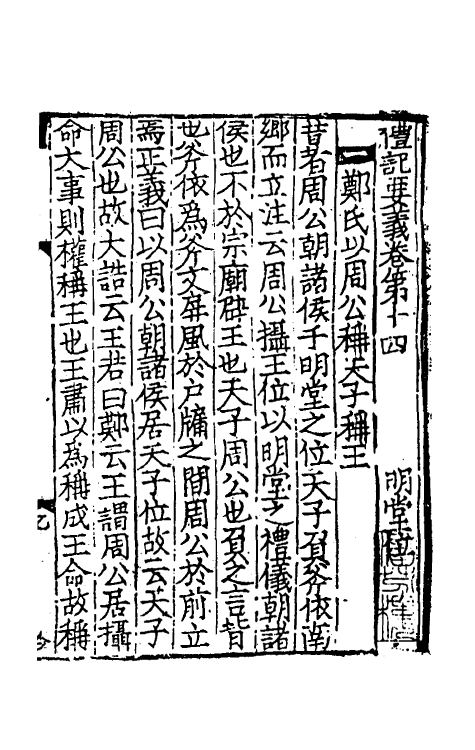 禮記要義卷第十四 明堂位
一 鄭氏以周公稱天子稱王
昔者周公朝諸侯于明堂之位天子負斧依南
鄉而立注云周公攝王位以明堂之禮儀朝諸
侯也不於宗廟辟王也天子周公也負之言背
也斧依為斧文屏風於户牖之間周公於前立
焉正義曰以周公朝諸侯居天子位故云天子
周公也故大誥云王若曰鄭云王謂周公居攝
命大事則權稱王也王肅以為稱成王命故稱